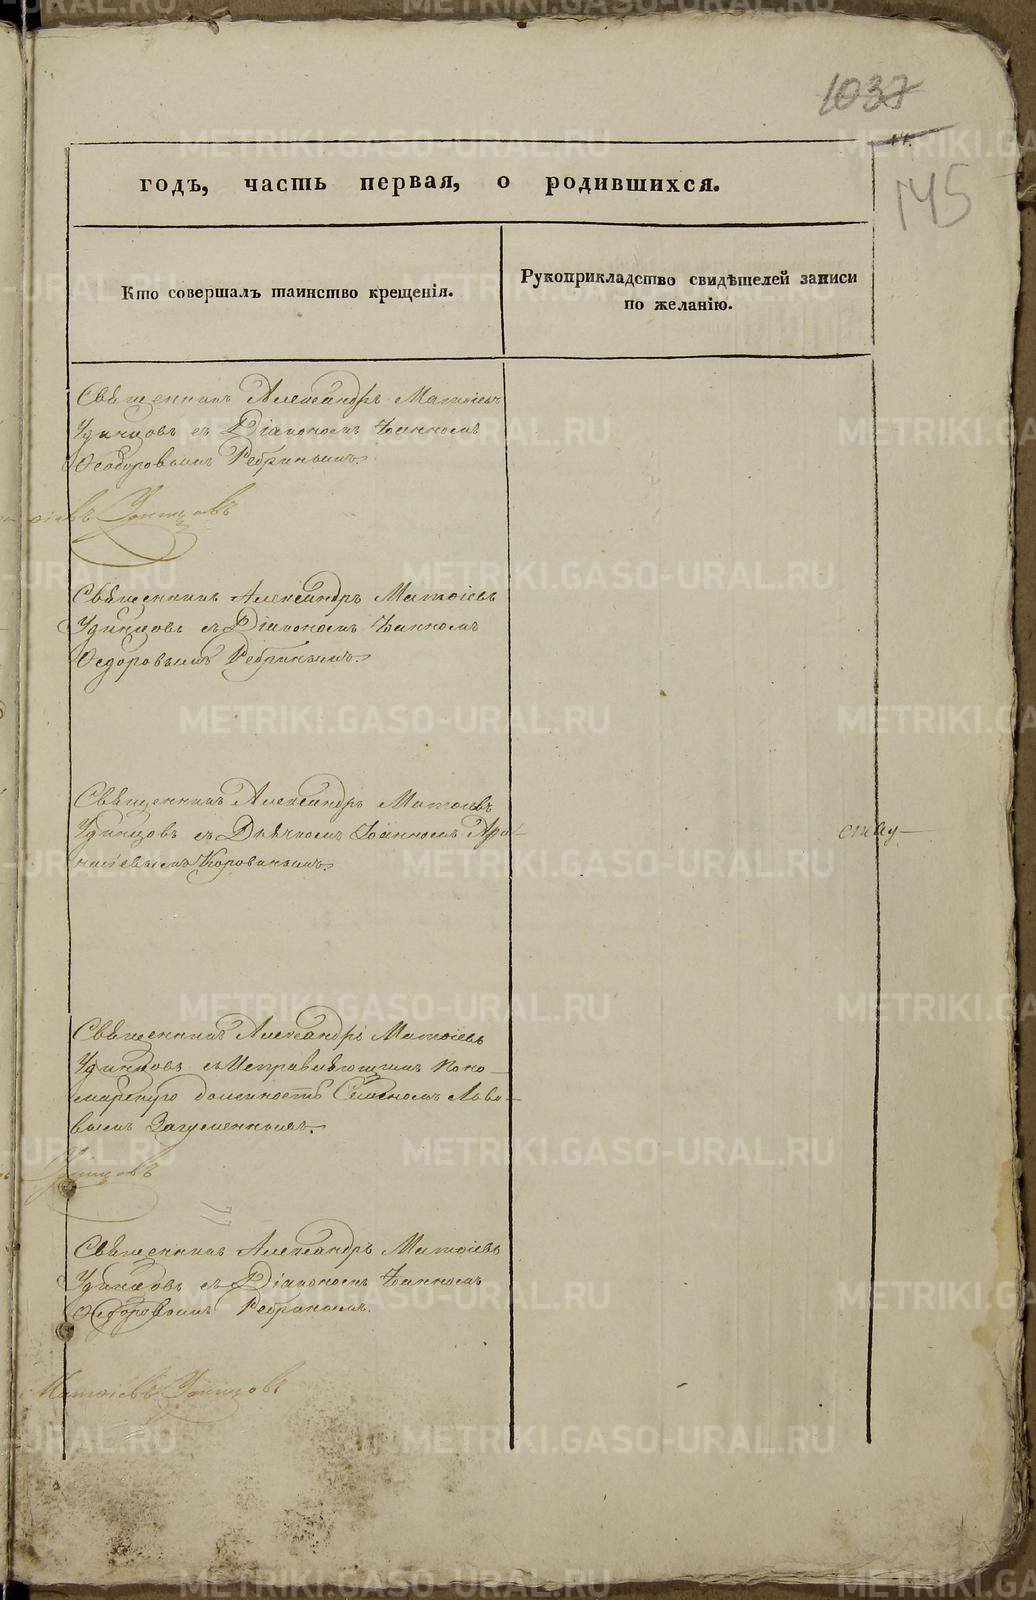 1037
145
годъ, часть первая, о родившихся.
Кто совершалъ таинство крещенія.
Рукоприкладство свидѣтелей записи
по желанію.
Священникъ Александръ Матѳіевъ
Удинцовъ съ Діакономъ Іоанномъ
Ѳеодоровымъ Ребринымъ.
Удинцовъ
Священникъ Александръ Матѳіевъ
Удинцовъ съ Діакономъ Іоанномъ
Ѳедоровымъ Ребринымъ.
Священникъ Александръ Матѳіевъ
Удинцовъ съ Дьячкомъ Іоанномъ
Коровинымъ.
Священникъ Александръ Матѳіевъ
Удинцовъ съ Исправляющимъ Поно-
марскую должность
вымъ Загуменнымъ.
Удинцовъ
Священникъ Александръ Матѳіевъ
Удинцовъ съ Діакономъ Іоанномъ
Ѳедоровымъ Ребринымъ.
Матѳіевъ Удинцовъ
METRIKI.GASO-URAL.RU